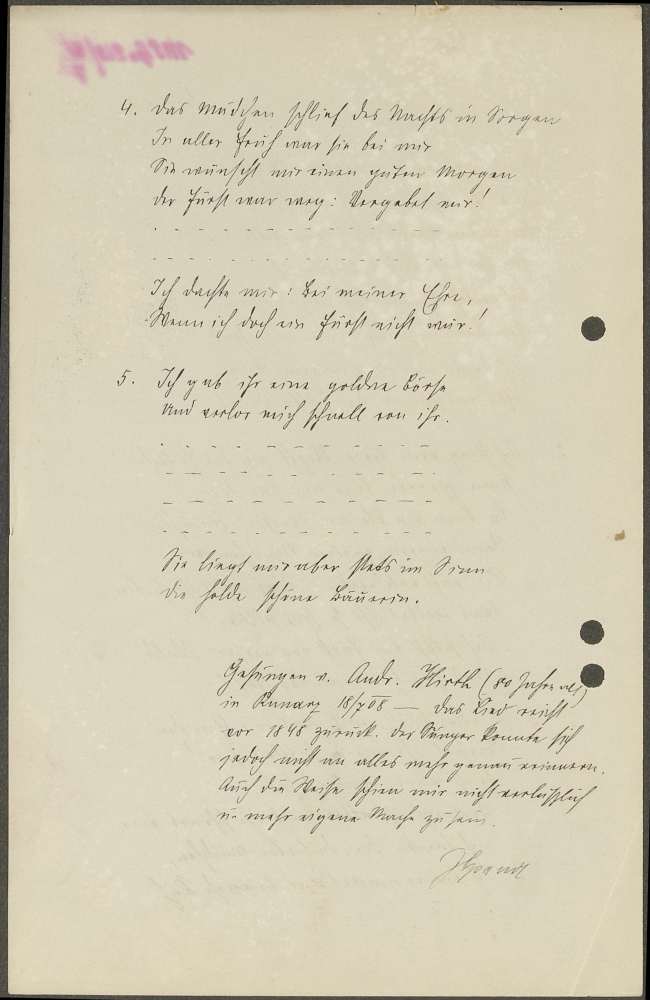 4. Das Mädchen schlief des Nachts in Sorgen
In aller Früh war sie bei mir
Sie wünscht mir einen guten Morgen
der Fürst war weg: Vergebet mir!
. - - - - - - - - - -
. - - - - - - - - - -
Ich dachte mir: Bei meiner Ehre,
Wenn ich doch ein Fürst nicht wär!
5. Ich gab ihr eine goldne Börse
Und verlor mich schnell von ihr.
. - - - - - - - - - -
- - - - - - - - - - -
- - - - - - - - - - -
. - - - - - - - - - -
Sie liegt mir aber stets im Sinn
die holde schöne Bäuerin.
Gesungen v. Andr. Hirth (80 Jahre alt)
in Runarz 18/7 08 — das Lied reicht
vor 1848 zurück. der Sänger konnte sich
jedoch nicht an alles mehr genau erinnern.
Auch die Weise schien mir nicht verlässlich
u. mehr eigene Mache zu sein.